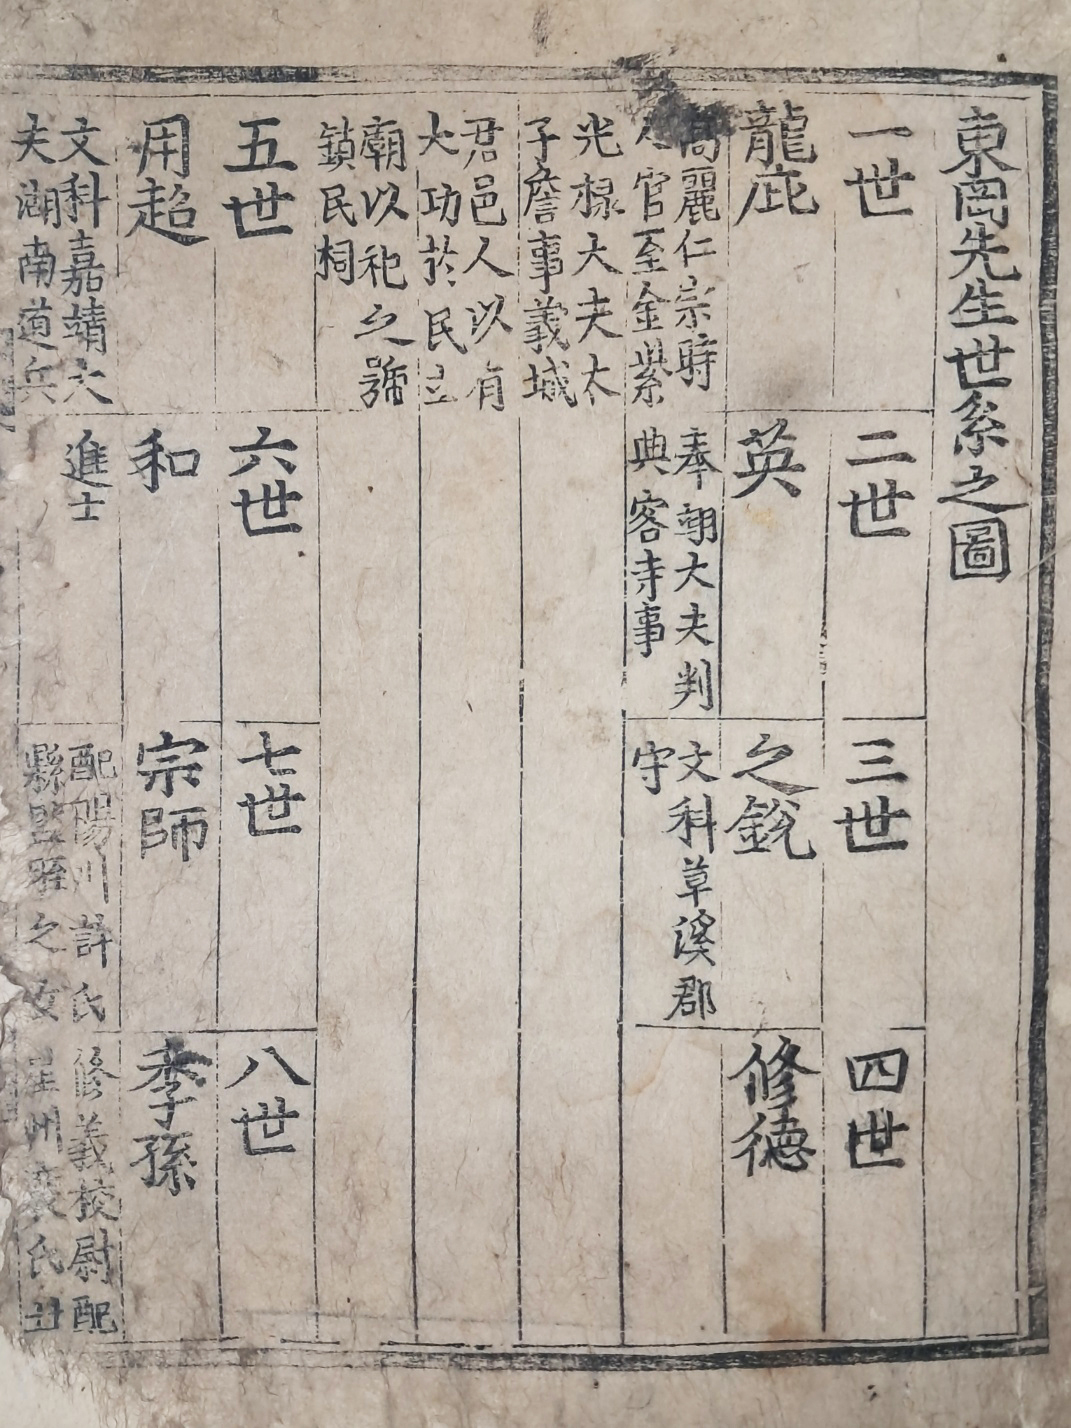 東岡先生世系之圖
一世
龍庇
高麗仁宗時
人官至金紫
光祿大夫太
子詹事義城
君邑人以有
大功於民立
廟以祀之號
鎮民祠
二世
英
奉翊大夫判
典客寺事
三世
之銳
文科草溪郡
守
四世
修德
五世
用超
文科嘉靖大
夫湖南道兵
六世
和
進士
七世
宗師
配陽川許氏
縣監之女
八世
李孫
修義校尉配
星州裵氏